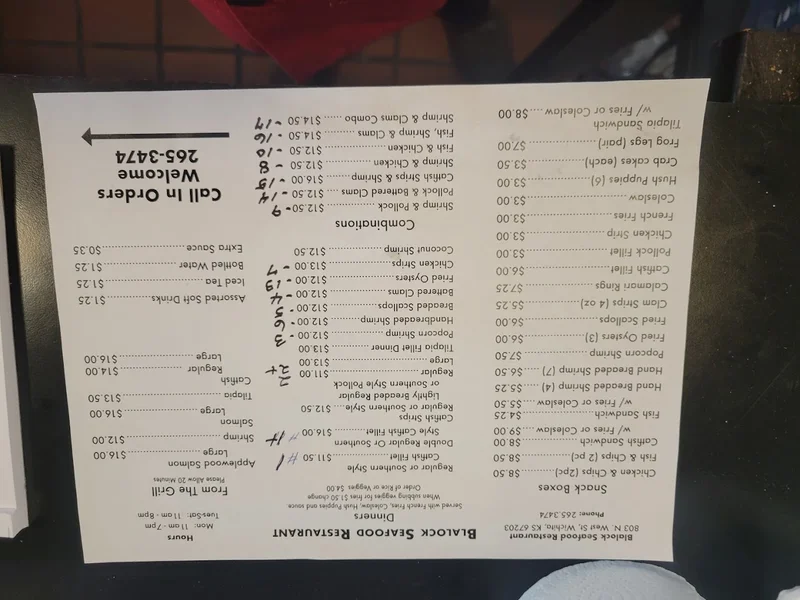 Blalock Seafood Restaurant
803 N. West St, Wichita, KS 67203
Phone: 265.3474
Snack Boxes
Chicken & Chips (2pc)............$8.50
Fish & Chips (2 pc)................$8.50
Catfish Sandwich ..................$8.00
w/ Fries or Coleslaw ....$9.00
Fish Sandwich.....................$4.25
w/ Fries or Coleslaw .....$5.50
Hand Breaded Shrimp (4) .....$5.25
Hand Breaded Shrimp (7) .....$6.50
Popcorn Shrimp ...................$7.50
Fried Oysters (3) ...................$6.00
Fried Scallops ......................$6.00
Clam Strips (4 oz) .................$5.25
Calamari Rings .....................$7.25
Catfish Fillet .........................$6.00
Pollock Fillet .........................$3.00
Chicken Strip .......................$3.00
French Fries .........................$3.00
Coleslaw .............................$3.00
Hush Puppies (6) ..................$3.00
Crab cakes (each) ................$3.50
Frog Legs (pair) ....................$7.00
Tilapia Sandwich
w/ Fries or Coleslaw .....$8.00
Blalock Seafood Restaurant
Dinners
Served with French Fries, Coleslaw, Hush Puppies and sauce
When subbing veggies for fries $1.50 change
Order of Rice or Veggies $4.00
Regular or Southern Style
Catfish Fillet ..................$11.50 #1
Double Regular Or Southern
Style Catfish Fillet...........$16.00 #1+
Catfish Strips
Regular or Southern Style.....$12.50
Lightly Breaded Regular
or Southern Style Pollock
Regular ......................$11.00 2
Large .........................$13.00 2+
Tilapia Fillet Dinner ...........$13.00
Popcorn Shrimp ...............$12.00 - 3
Handbreaded Shrimp........$12.00 - 6
Breaded Scallops .............$12.00 - 5
Battered Clams ................$12.00 - 4
Fried Oysters ...................$12.00 - 13
Chicken Strips .................$13.00 - 7
Coconut Shrimp...............$12.50
Combinations
Shrimp & Pollock ..............$12.50 - 9
Pollock & Battered Clams ..$12.50 - 14
Catfish Strips & Shrimp ......$16.00 - 15
Shrimp & Chicken .............$12.50 - 8
Fish & Chicken .................$12.50 - 10
Fish, Shrimp & Clams ........$14.50 - 16
Shrimp & Clams Combo ......$14.50 - 17
Hours
Mon: 11am - 7pm
Tues-Sat: 11am - 8pm
From The Grill
Please Allow 20 Minutes
Applewood Salmon
Large ........................$16.00
Shrimp ..........................$12.00
Salmon
Large ........................$16.00
Tilapia ...........................$13.50
Catfish
Regular .....................$14.00
Large ........................$16.00
Assorted Soft Drinks..............$1.25
Iced Tea ............................$1.25
Bottled Water .....................$1.25
Extra Sauce ........................$0.35
Call In Orders
Welcome
265-3474